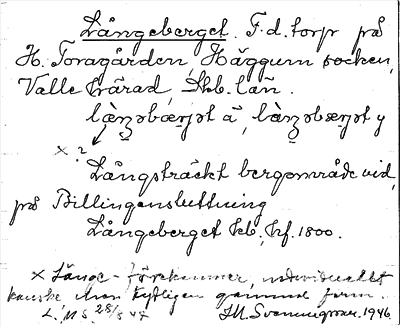 Långeberget. F.d. torp på
H. Toragården, Häggum socken,
Valle härad, Skb. län.
làŋəbærjət å, làŋəbærjət y
x ?
Långsträckt bergområde vid,
på Billingens sluttning
Långeberget kb, hf. 1800.
x Länge- förekommer, individuellt
kanske, men tydligen gammal form.
L. M. S. 28/8 47 J.M. Svenningsson. 1946.